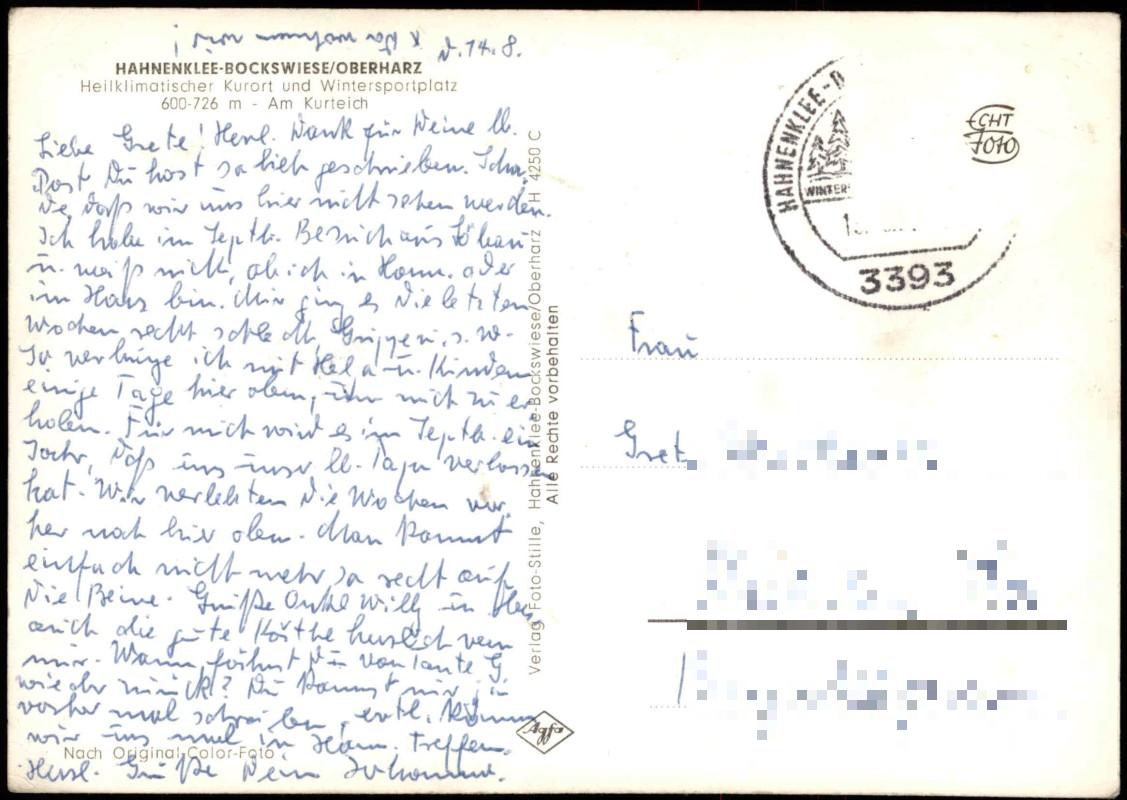 x Da wohnen wir!
d. 14.8.
HAHNENKLEE-BOCKSWIESE/OBERHARZ
Heilklimatischer Kurort und Wintersportplatz
600-726 m - Am Kurteich
Liebe Grete! Herzl. Dank für Deine lb.
Post Du hast so lieb geschrieben. Scha-
de, daß wir uns hier nicht sehen werden.
Ich habe im Septb. Besuch aus
u. weiß nicht, ob ich in Hann. oder
im Harz bin. Mir ging es die letzten
Wochen recht schlecht, Grippe u.s.w.
So verbringe ich mit Hela u. Kindern
einige Tage hier oben, um mich zu er-
holen. Für mich wird es im Septb. ein
Jahr, daß uns unser lb. Papa verlassen
hat. Wir verlebten die Wochen vor-
her noch hier oben. Man kommt
einfach nicht mehr so recht auf
die Beine. Grüße Onkel Willy u.
auch die gute Käthe herzlich von
mir. Wann fährst Du von Tante G.
wieder zurück? Du kannst mir ja
vorher mal schreiben, evtl. können
wir uns mal in Hann. treffen.
Herzl. Grüße Deine Johanna.
Nach Original-Color-Foto
Verlag Foto-Stille, Hahnenklee-Bockswiese/Oberharz H 4250 C
Alle Rechte vorbehalten
Agfa
HAHNENKLEE-
WINTER
3393
ECHT
FOTO
Frau
Gret